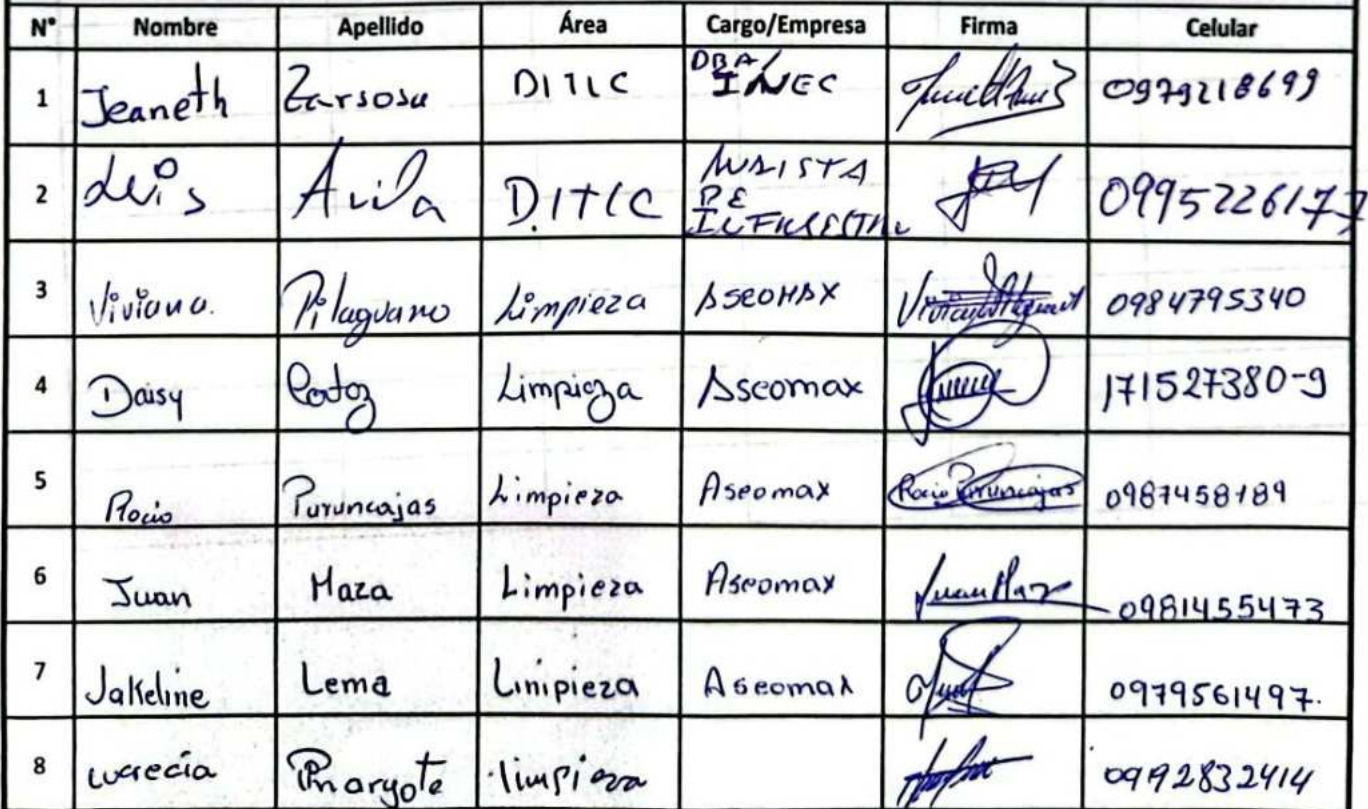 N° Nombre Apellido Área Cargo/Empresa Firma Celular
1 Jeaneth Zarsosa DITIC DBA INEC 0979218699
2 Luis Avila DITIC DE 0995226177
3 Viviana. Pilaguano Limpieza Aseomax 0984795340
4 Daisy Limpieza Aseomax 171527380-9
5 Rocio Puruncajas Limpieza Aseomax Rocio Puruncajas 0987458189
6 Juan Maza Limpieza Aseomax Juan Maz 0981455473
7 Jakeline Lema Limpieza Aseomax 0979561497.
8 Lucrecia limpieza 0992832414